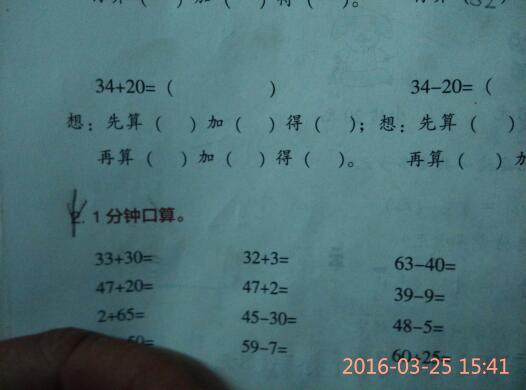 再算（ ）加（ ）得（ ）。
34+20=（ ） 34-20=（
想：先算（ ）加（ ）得（ ）；想：先算（ ）
再算（ ）加（ ）得（ ）。 再算（ ）加
2. 1分钟口算。
33+30= 32+3= 63-40=
47+20= 47+2= 39-9=
2+65= 45-30= 48-5=
59-7= 60+25=
2016-03-25 15:41